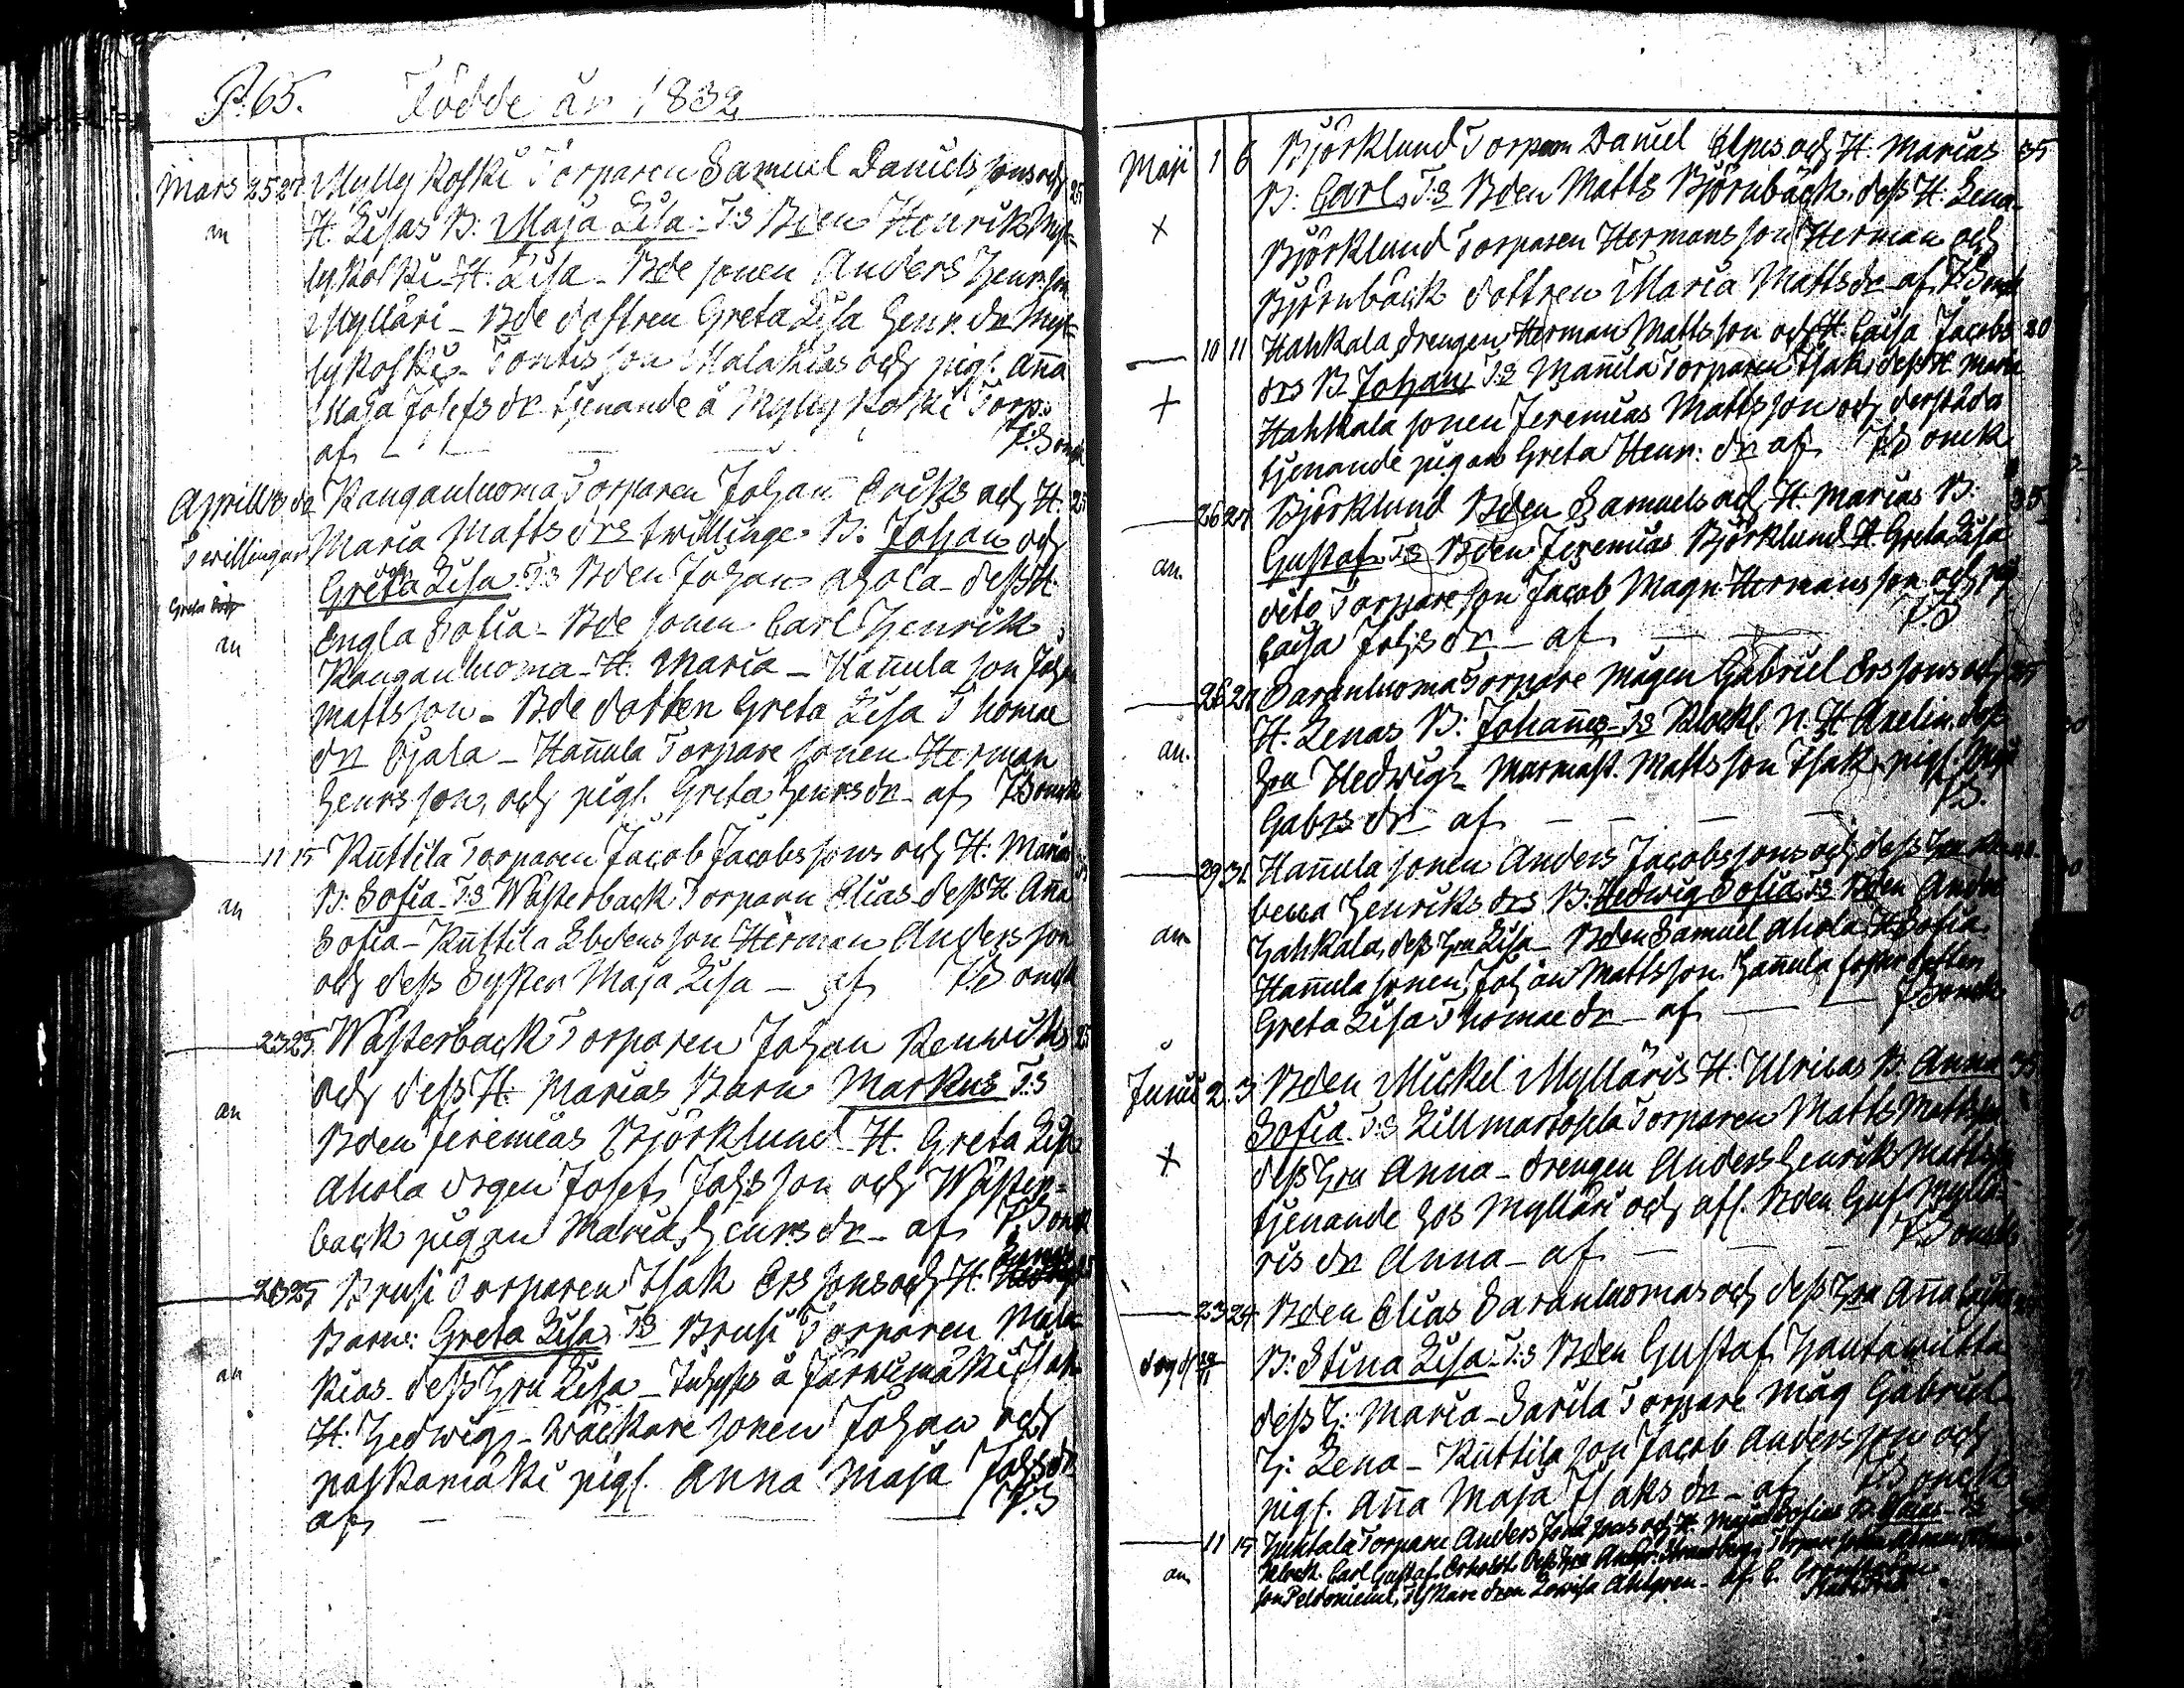 P. 65. Födde år 1832
Mars 25 27 Myllykoski Torparen Samuel Danielssons och 25
an H. Lisas B: Maja Lisa. T:s Bden Henrik Myl-
lykoski H. Lisa - Bde sonen Anders Henr. son
Mylläri - Bde dottren Greta Lisa Henr. dr Myl-
lykoski - Tontis son Malakias och pig. Anna
Maja Josefs dr tjenande å Myllykoski Torp.
af - - - - P. Bonck
Aprill Kanganluoma Torparen Johan Eriks och H. 25
Twillingar Maria Matts drs twillinge B: Johan och
Greta död Greta Lisa T:s Bden Johan Ahola - dess H.
an Engla Sofia - Bde sonen Carl Henrik
Kanganluoma - H. Maria - Hannula son Johan
Mattsson - Bde dotten Greta Lisa Thomae
dr Ojala - Hannula Torpare sonen Herman
Henrs son, och pig. Greta Henrs dr - af P. Bonck
11 15 Kuttila Torparen Jacob Jacobssons och H: Marias
an B: Sofia. T:s Wästerback Torparn Elias dess H Anna
Sofia - Kuttila Ebdens son Herman Andersson
och dess Syster Maja Lisa - af P. Bonck
23 25 Wästerback Torparen Johan Renwiks 25
an och dess H. Marias Barn Markus T:s
Bden Jeremias Björklund H. Greta Lisa
Ahola drgen Josef Johs son och Wäster-
back pigan Maria Henrs dr - af P. Bonck
23 25 Brusi Torparen Isak Ers sons och H.
an Barn: Greta Lisa T:s Brusi Torparen Mala-
kias dess Hru Lisa - Inhyses å Järwimäki Isak
H. Hedwig - Wäckare sonen Johan och
Paskamäki pig. Anna Maja Johs dr
af - - - P.B
Maji 1 6 Björklund Torparn Daniel Elgus och H. Marias 35
B: Carl, T:s Bden Matts Björnbäck, dess H. Lena
+ Björklund Torparen Hermans son Herman och
Björnbäck dottren Maria Matts dr af P. Bonck
10 11 Hahkala drengen Herman Mattsson och H. Caisa Jacobs 30
drs B Johan T:s Mannila Torparen Isak, dess H Maria
+ Hahkala sonen Jeremias Mattsson och derstädes
tjenande pigan Greta Henr: dr af P. Bonck
26 27 Björklund Bden Samuels och H. Marias B: 35
an. Gustaf T:s Bden Jeremias Björklund H. Greta Lisa
dito Torpare son Jacob Magn. Hermansson och pig
Caisa Johs dr - af - - P.B
26 27 Saranluoma Torpare mågen Gabriel Ers sons och
an. H. Lenas B: Johannes T:s Klock. N. H. Axelin dess
Hru Hedwig - Marmäst. Mattsson Isak, pig. Maja
Gabrs dr - af - - - P.B.
29 31 Hannula sonen Anders Jacobssons och dess Hru Re-
becca Henriks drs B: Hedwig Sofia T:s Bden Anders
an Hahkala, dess Hru Lisa - Bden Samuel Ahola, H Sofia
Hannula sonen Johan Mattsson Hannula foster dotten
Greta Lisa Thomae dr - af - - P. Bonck
Junii 2 3 Bden Mickel Mylläris H. Ulricas B. Anna 35
Sofia. T:s Lillmartosila Torparen Matts Mattsson
+ dess Hru Anna - drengen Anders Henrik Mattsson
tjenande hos Mylläri och afl. Bden Gust. Myllä-
ris dr Anna - af - - - P. Bonck
23 24 Bden Elias Saranluomas och dess Hru Anna Lisas
död B: Stina Lisa. T:s Bden Gustaf Hautawiitta
dess H: Maria - Sarila Torpare måg Gabriel
H: Lena - Kuttila son Jacob Andersson och
pig. Anna Maja Isaks dr - af P. Bonck
11 15 Huhtala Torpare Anders sons och H. Maja Sofias B
an Klock. Carl Gustaf
son Peldoniemi, dren Lowisa Ahlgren - af